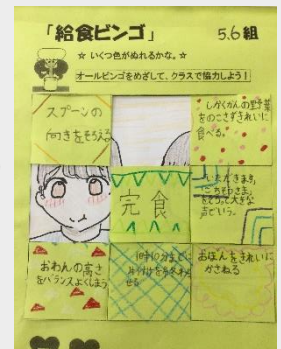 「給食ビンゴ」
5.6組
☆ いくつ色がぬれるかな。☆
オールビンゴをめざして、クラスで協力しよう！
スプーンの
向きをそろえる
しょくかんの野菜
をのこさずきれいに
食べる。
完食
いただきます、
ごちそうさま
をもっと大きな
声でいう。
おわんの高さ
をバランスよくしまう
1時10分までに
片づけを
せる
おぼんをきれいに
かさねる